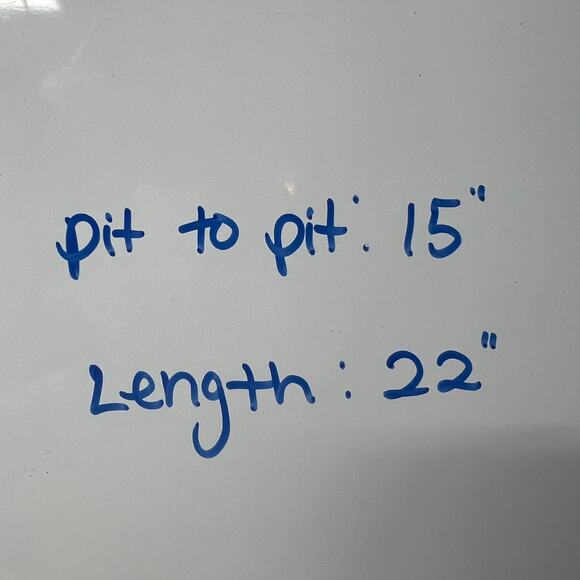 pit to pit: 15"
Length: 22"